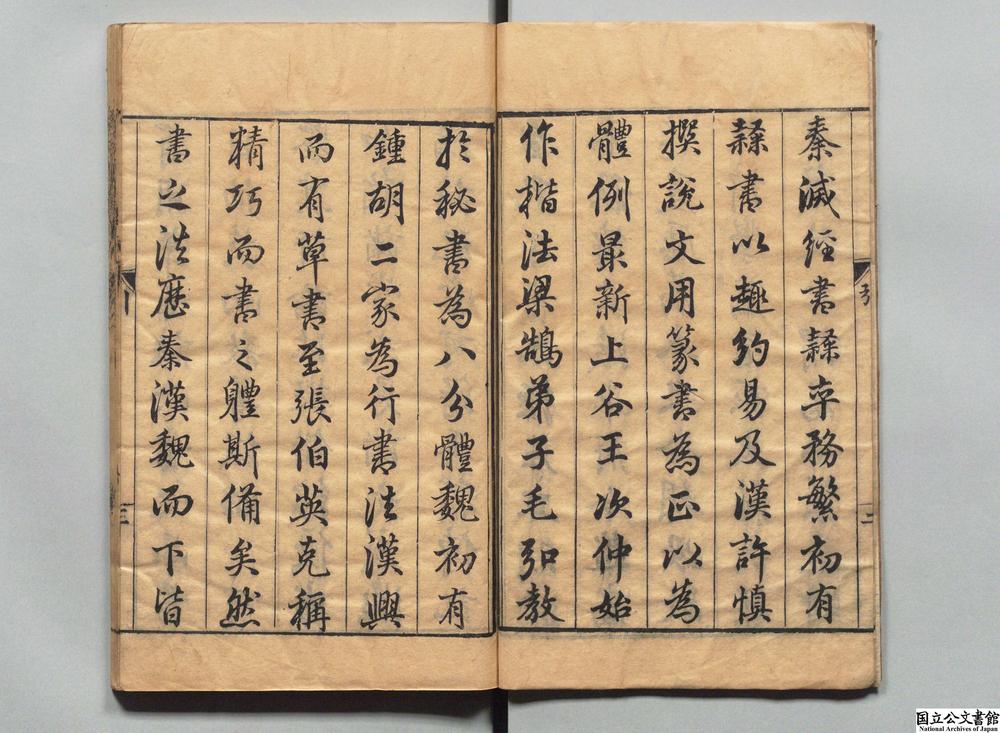 秦滅經書隸卒務繁初有
隸書以趣約易及漢許慎
撰說文用篆書為正以為
體例最新上谷王次仲始
作楷法梁鵠弟子毛弘教
於秘書為八分體魏初有
鍾胡二家為行書法漢興
而有草書至張伯英克稱
精巧而書之體斯備矣然
書之法歷秦漢魏而下皆
二
三
国立公文書館
National Archives of Japan